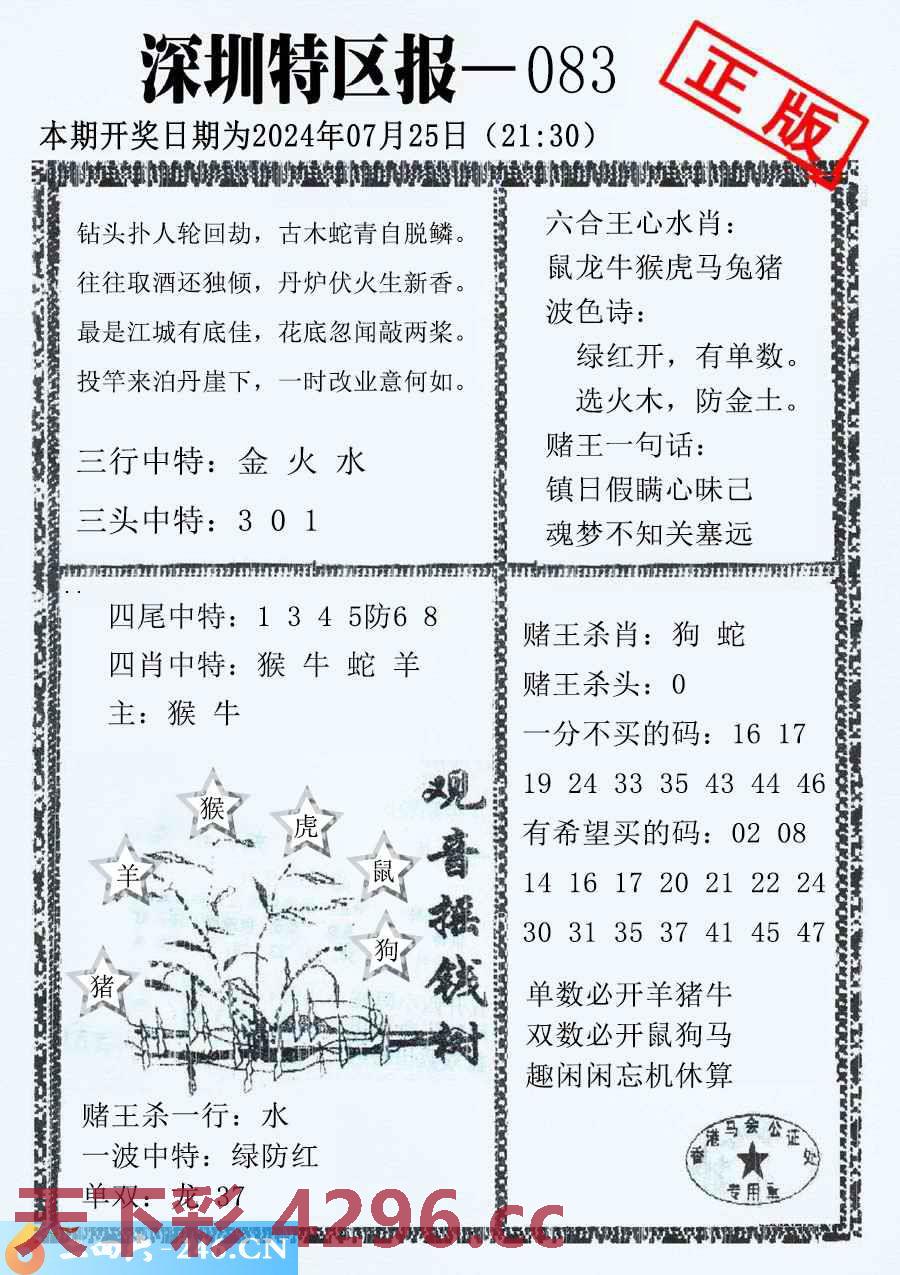 深圳特区报—083
正版
本期开奖日期为2024年07月25日（21:30）
钻头扑人轮回劫，古木蛇青自脱鳞。
往往取酒还独倾，丹炉伏火生新香。
最是江城有底佳，花底忽闻敲两桨。
投竿来泊丹崖下，一时改业意何如。
三行中特：金 火 水
三头中特：3 0 1
六合王心水肖：
鼠龙牛猴虎马兔猪
波色诗：
绿红开，有单数。
选火木，防金土。
赌王一句话：
镇日假瞒心昧己
魂梦不知关塞远
四尾中特：1 3 4 5防6 8
四肖中特：猴 牛 蛇 羊
主：猴 牛
猴
虎
羊
鼠
狗
猪
观音摇钱树
赌王杀一行：水
一波中特：绿防红
单双：龙 37
赌王杀肖：狗 蛇
赌王杀头：0
一分不买的码：16 17
19 24 33 35 43 44 46
有希望买的码：02 08
14 16 17 20 21 22 24
30 31 35 37 41 45 47
单数必开羊猪牛
双数必开鼠狗马
趣闲闲忘机休算
香港马会公证处
专用章
天下彩 4296.cc
246.CN